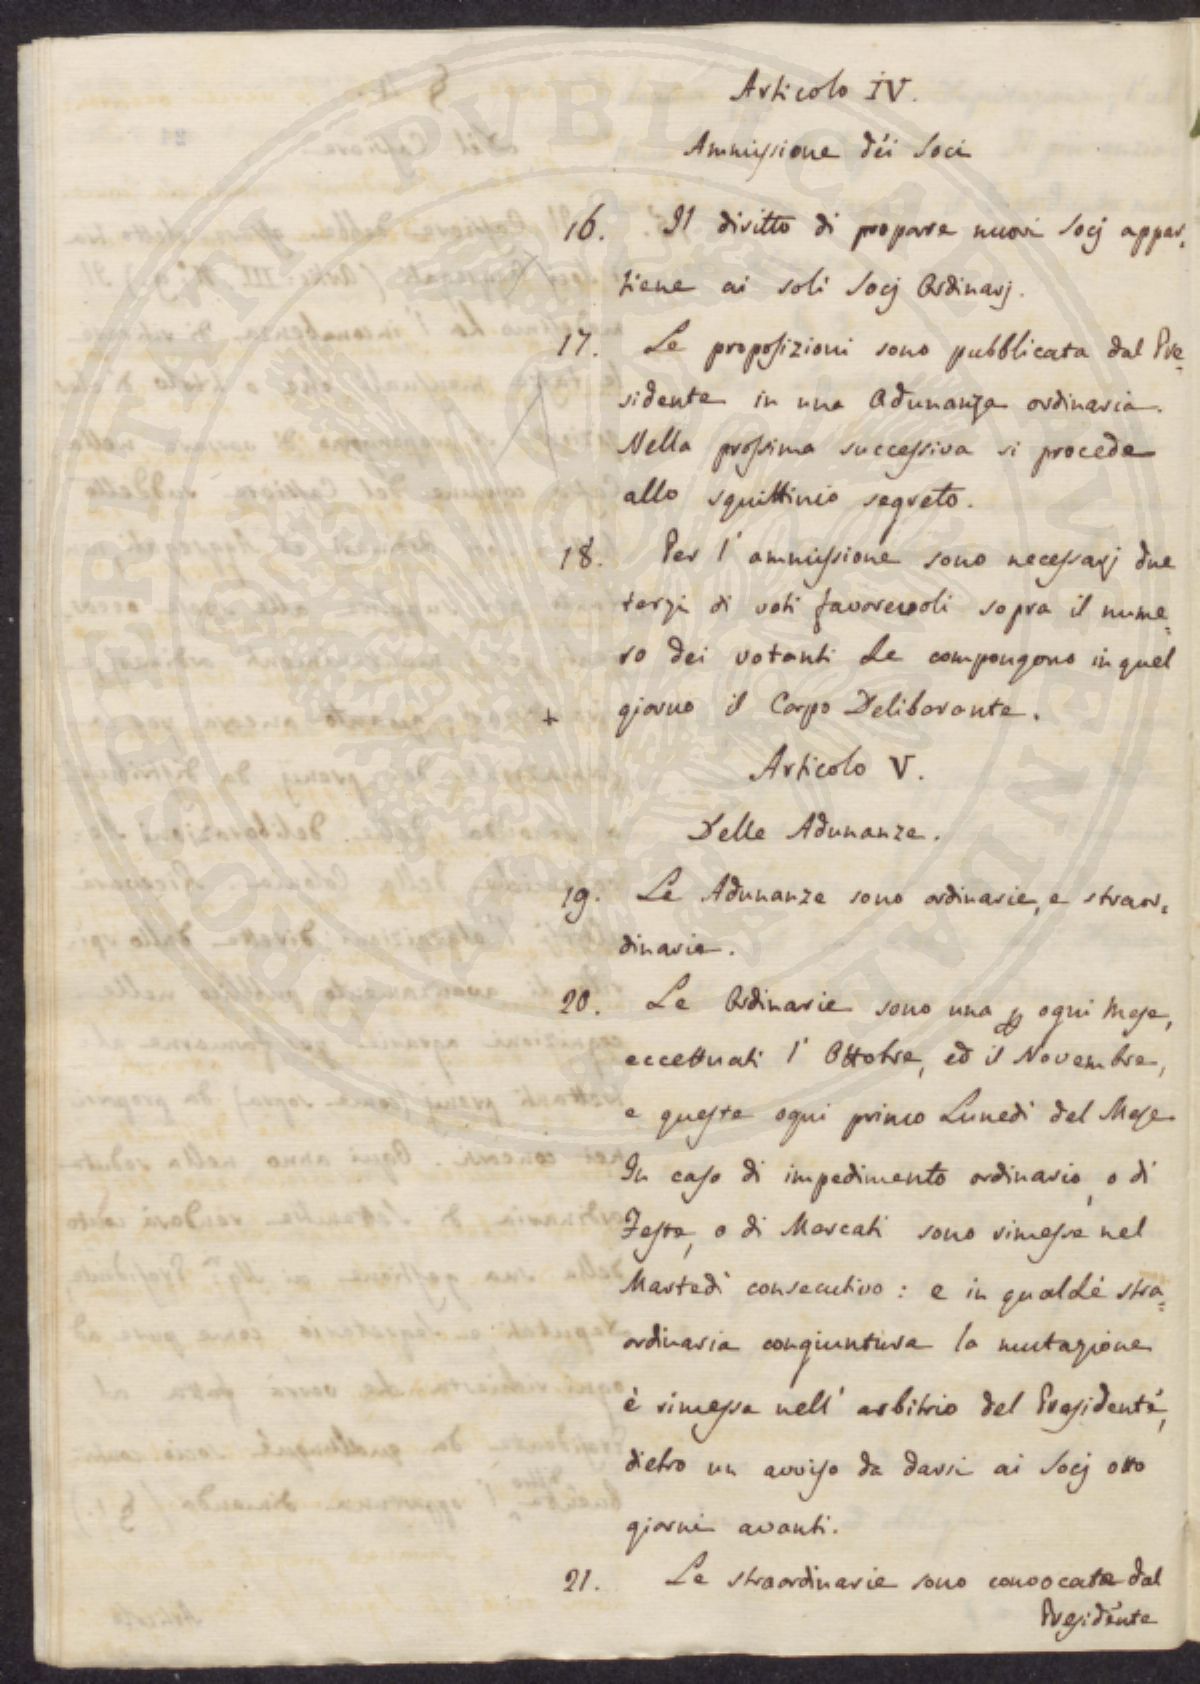 Articolo IV.
Ammissione dei Soci
16. Il diritto di proporre nuovi Socj appar=
tiene ai soli Socj Ordinarj.
17. Le proposizioni sono pubblicate dal Pre=
sidente in una Adunanza ordinaria.
Nella prossima successiva si procede
allo squittinio segreto.
18. Per l' ammissione sono necessarj due
terzi di voti favorevoli sopra il nume=
ro dei votanti che compongono in quel
+ giorno il Corpo Deliberante.
Articolo V.
Delle Adunanze.
19. Le Adunanze sono ordinarie, e straor=
dinarie.
20. Le Ordinarie sono una ogni Mese,
eccettuati l' Ottobre, ed il Novembre,
e queste ogni primo Lunedì del Mese
In caso di impedimento ordinario, o di
Feste, o di Mercati sono rimesse nel
Martedì consecutivo: e in qualche stra=
ordinaria congiuntura la mutazione
è rimessa nell' arbitrio del Presidente,
dietro un avviso da darsi ai Socj otto
giorni avanti.
21. Le straordinarie sono convocate dal
Presidente